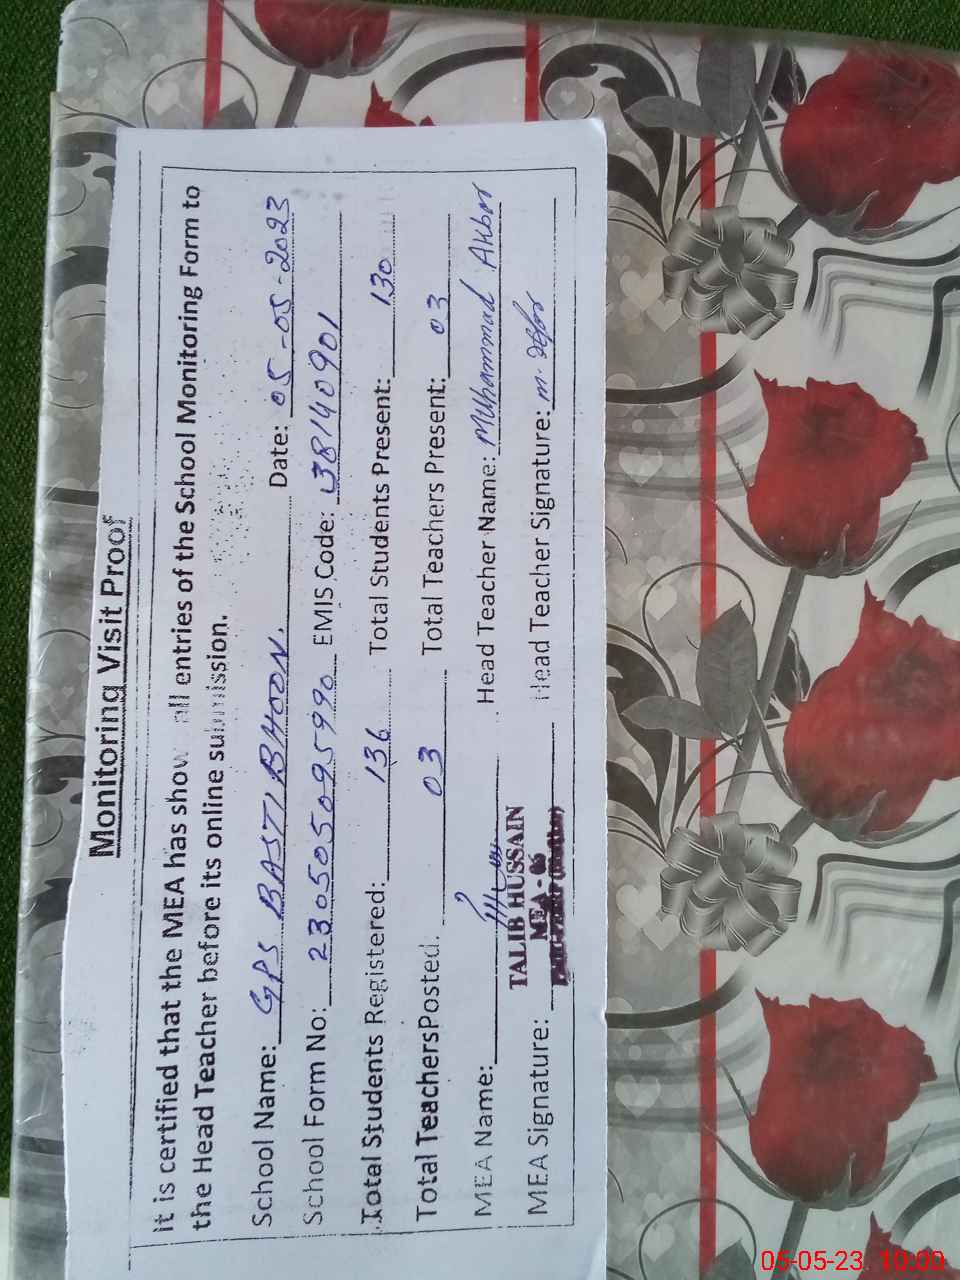 Monitoring Visit Proof
It is certified that the MEA has show all entries of the School Monitoring Form to
the Head Teacher before its online submission.
School Name: GPS BASTI BHOON. Date: 05-05-2023
School Form No: 23050509599 EMIS Code: 38140901
Total Students Registered: 136 Total Students Present: 130
Total Teachers Posted. 03 Total Teachers Present: 03
MEA Name: Head Teacher Name: Muhammad Akbar
TALIB HUSSAIN
MEA - 06
MEA Signature: Head Teacher Signature: m.
05-05-23 10:00